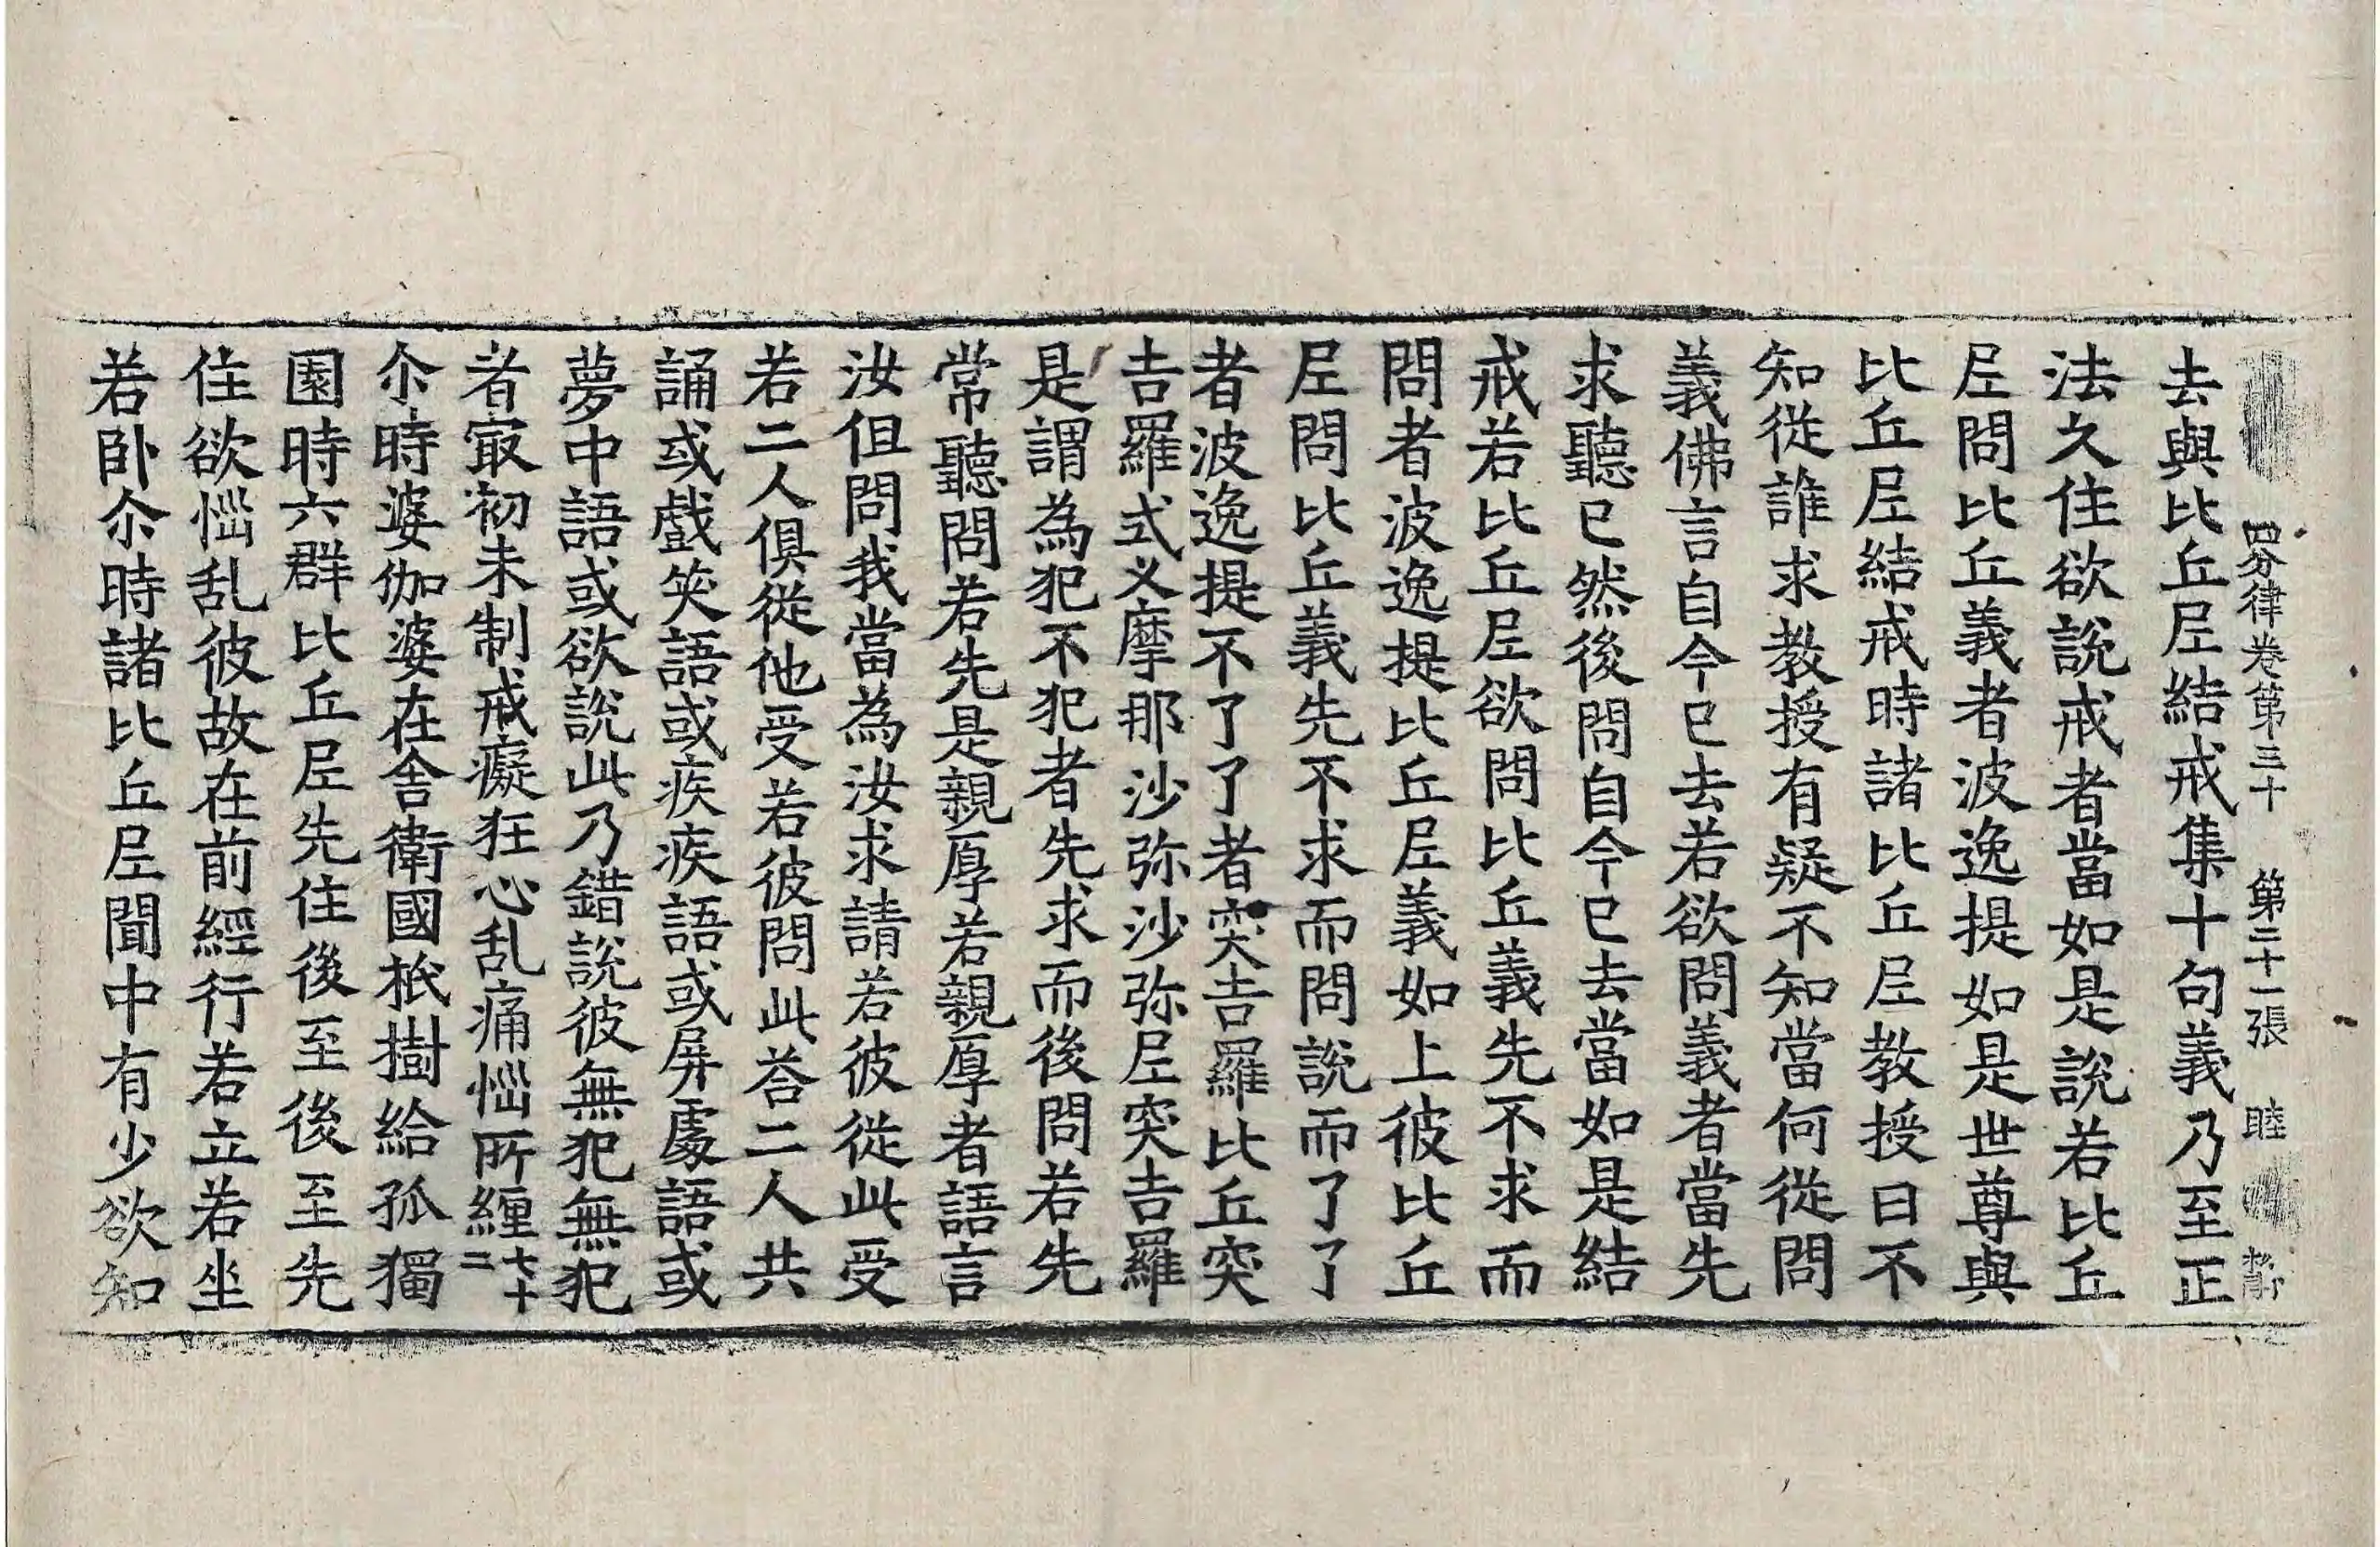 四分律卷第三十　第二十一張　睦
去與比丘尼結戒集十句義乃至正
法久住欲說戒者當如是說若比丘
尼問比丘義者波逸提如是世尊與
比丘尼結戒時諸比丘尼教授曰不
知從誰求教授有疑不知當何從問
義佛言自今已去若欲問義者當先
求聽已然後問自今已去當如是結
戒若比丘尼欲問比丘義先不求而
問者波逸提比丘尼義如上彼比丘
尼問比丘義先不求而問說而了了
者波逸提不了了者突吉羅比丘突
吉羅式叉摩那沙弥沙弥尼突吉羅
是謂為犯不犯者先求而後問若先
常聽問若先是親厚若親厚者語言
汝但問我當為汝求請若彼從此受
若二人俱從他受若彼問此荅二人共
誦或戲笑語或疾疾語或屏處語或
夢中語或欲說此乃錯說彼無犯無犯
者㝡初未制戒癡狂心乱痛惱所纏七十二
尒時婆伽婆在舍衛國祇樹給孤獨
園時六群比丘尼先住後至後至先
住欲惱乱彼故在前經行若立若坐
若卧尒時諸比丘尼聞中有少欲知